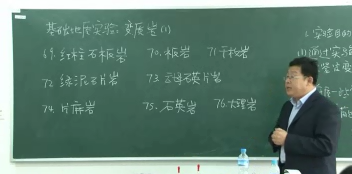 基础地质实验 变质岩(1)
69. 红柱石板岩 70. 板岩 71. 千枚岩
72. 绿泥石片岩 73. 云母石英片岩
74. 片麻岩 75. 石英岩 76. 大理岩
2. 实验目的
(1) 通过实验